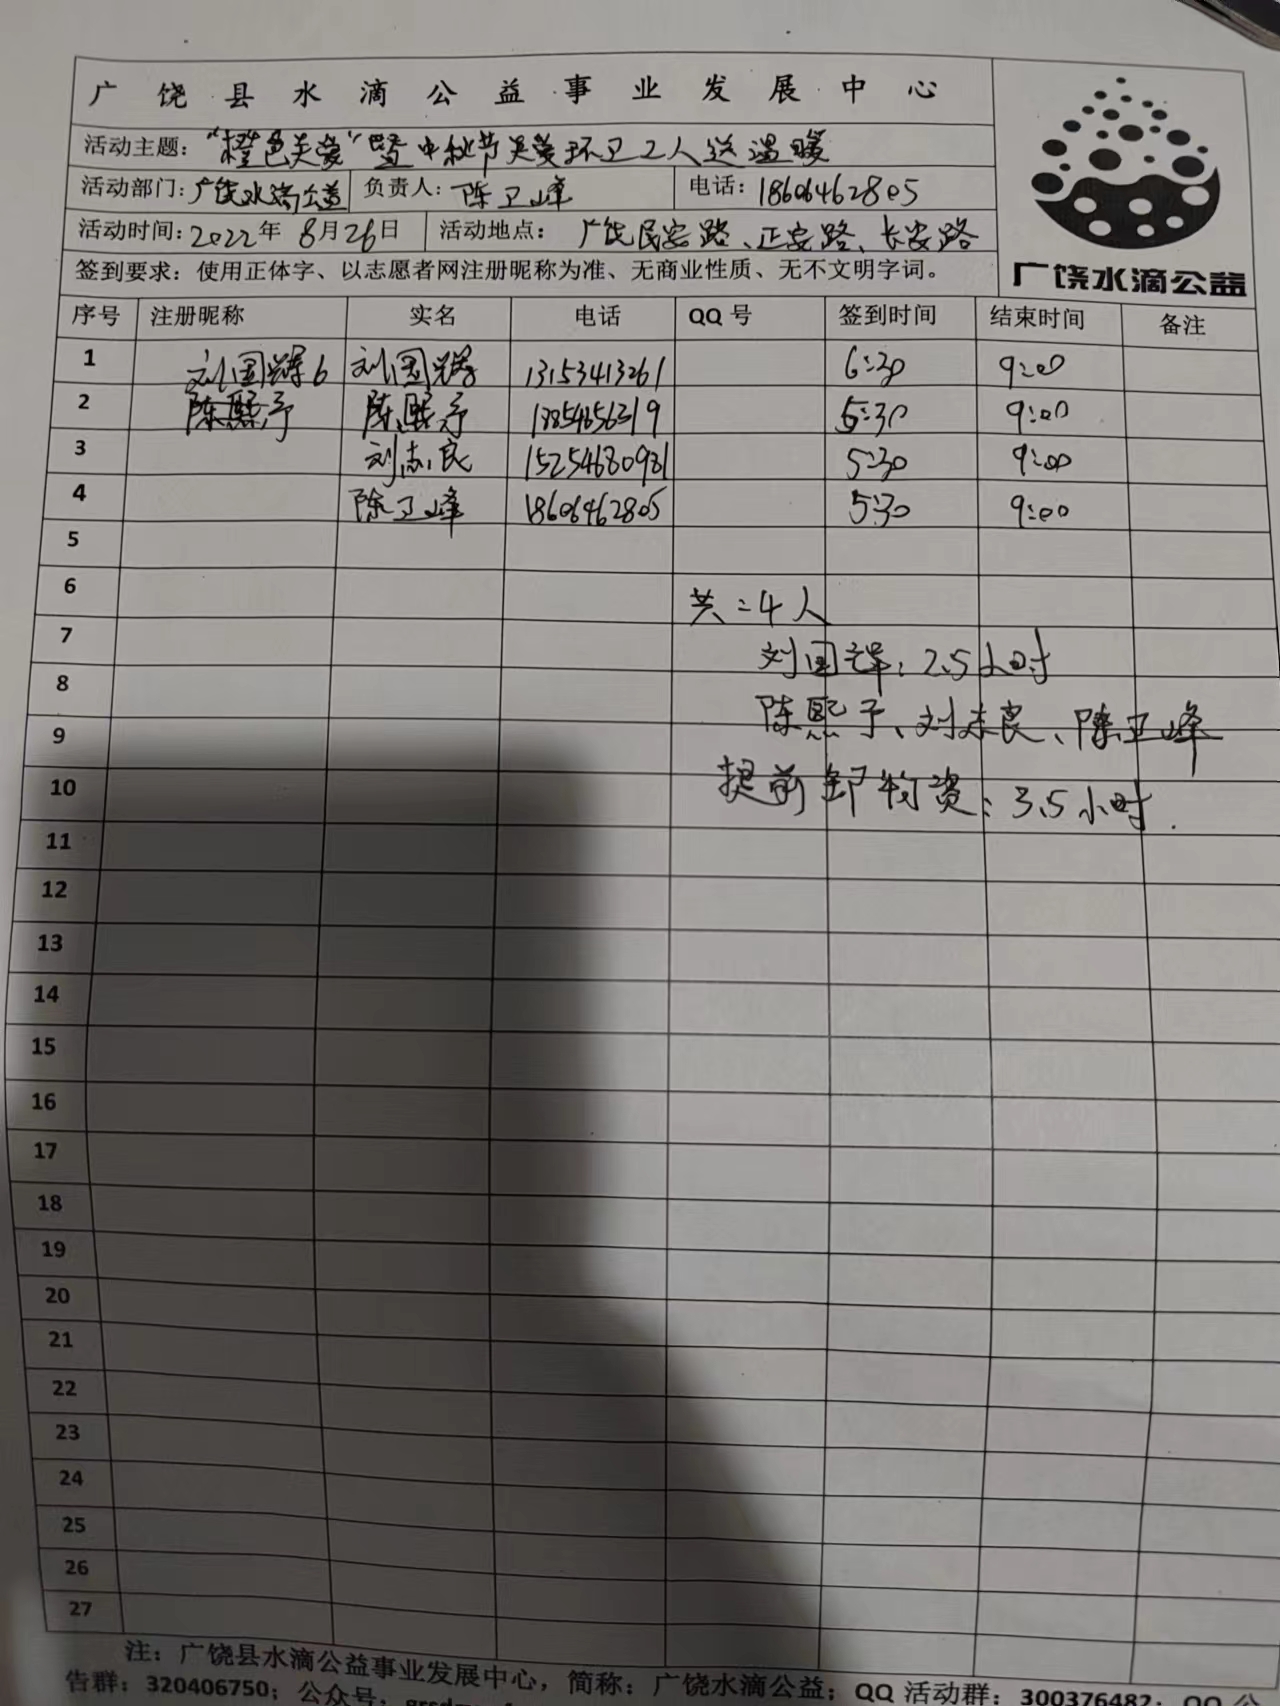 广饶县水滴公益事业发展中心
活动主题："橙色关爱"暨中秋节关爱环卫工人送温暖
活动部门：广饶水滴公益 负责人：陈卫峰 电话：18606462805
活动时间：2022年8月26日 活动地点：广饶民安路、正安路、长安路
签到要求：使用正体字、以志愿者网注册昵称为准、无商业性质、无不文明字词。
广饶水滴公益
序号 注册昵称 实名 电话 QQ号 签到时间 结束时间 备注
1 刘国辉6 刘国辉 13153413261 6:30 9:00
2 陈熙予 陈熙予 18854656319 5:30 9:00
3 刘志良 15254680931 5:30 9:00
4 陈卫峰 18606462805 5:30 9:00
5
6 共:4人
7 刘国辉：2.5小时
8 陈熙予、刘志良、陈卫峰
9
10 提前卸物资：3.5小时.
11
12
13
14
15
16
17
18
19
20
21
22
23
24
25
26
27
注：广饶县水滴公益事业发展中心，简称：广饶水滴公益；QQ活动群：300376482；QQ公
告群：320406750；公众号：